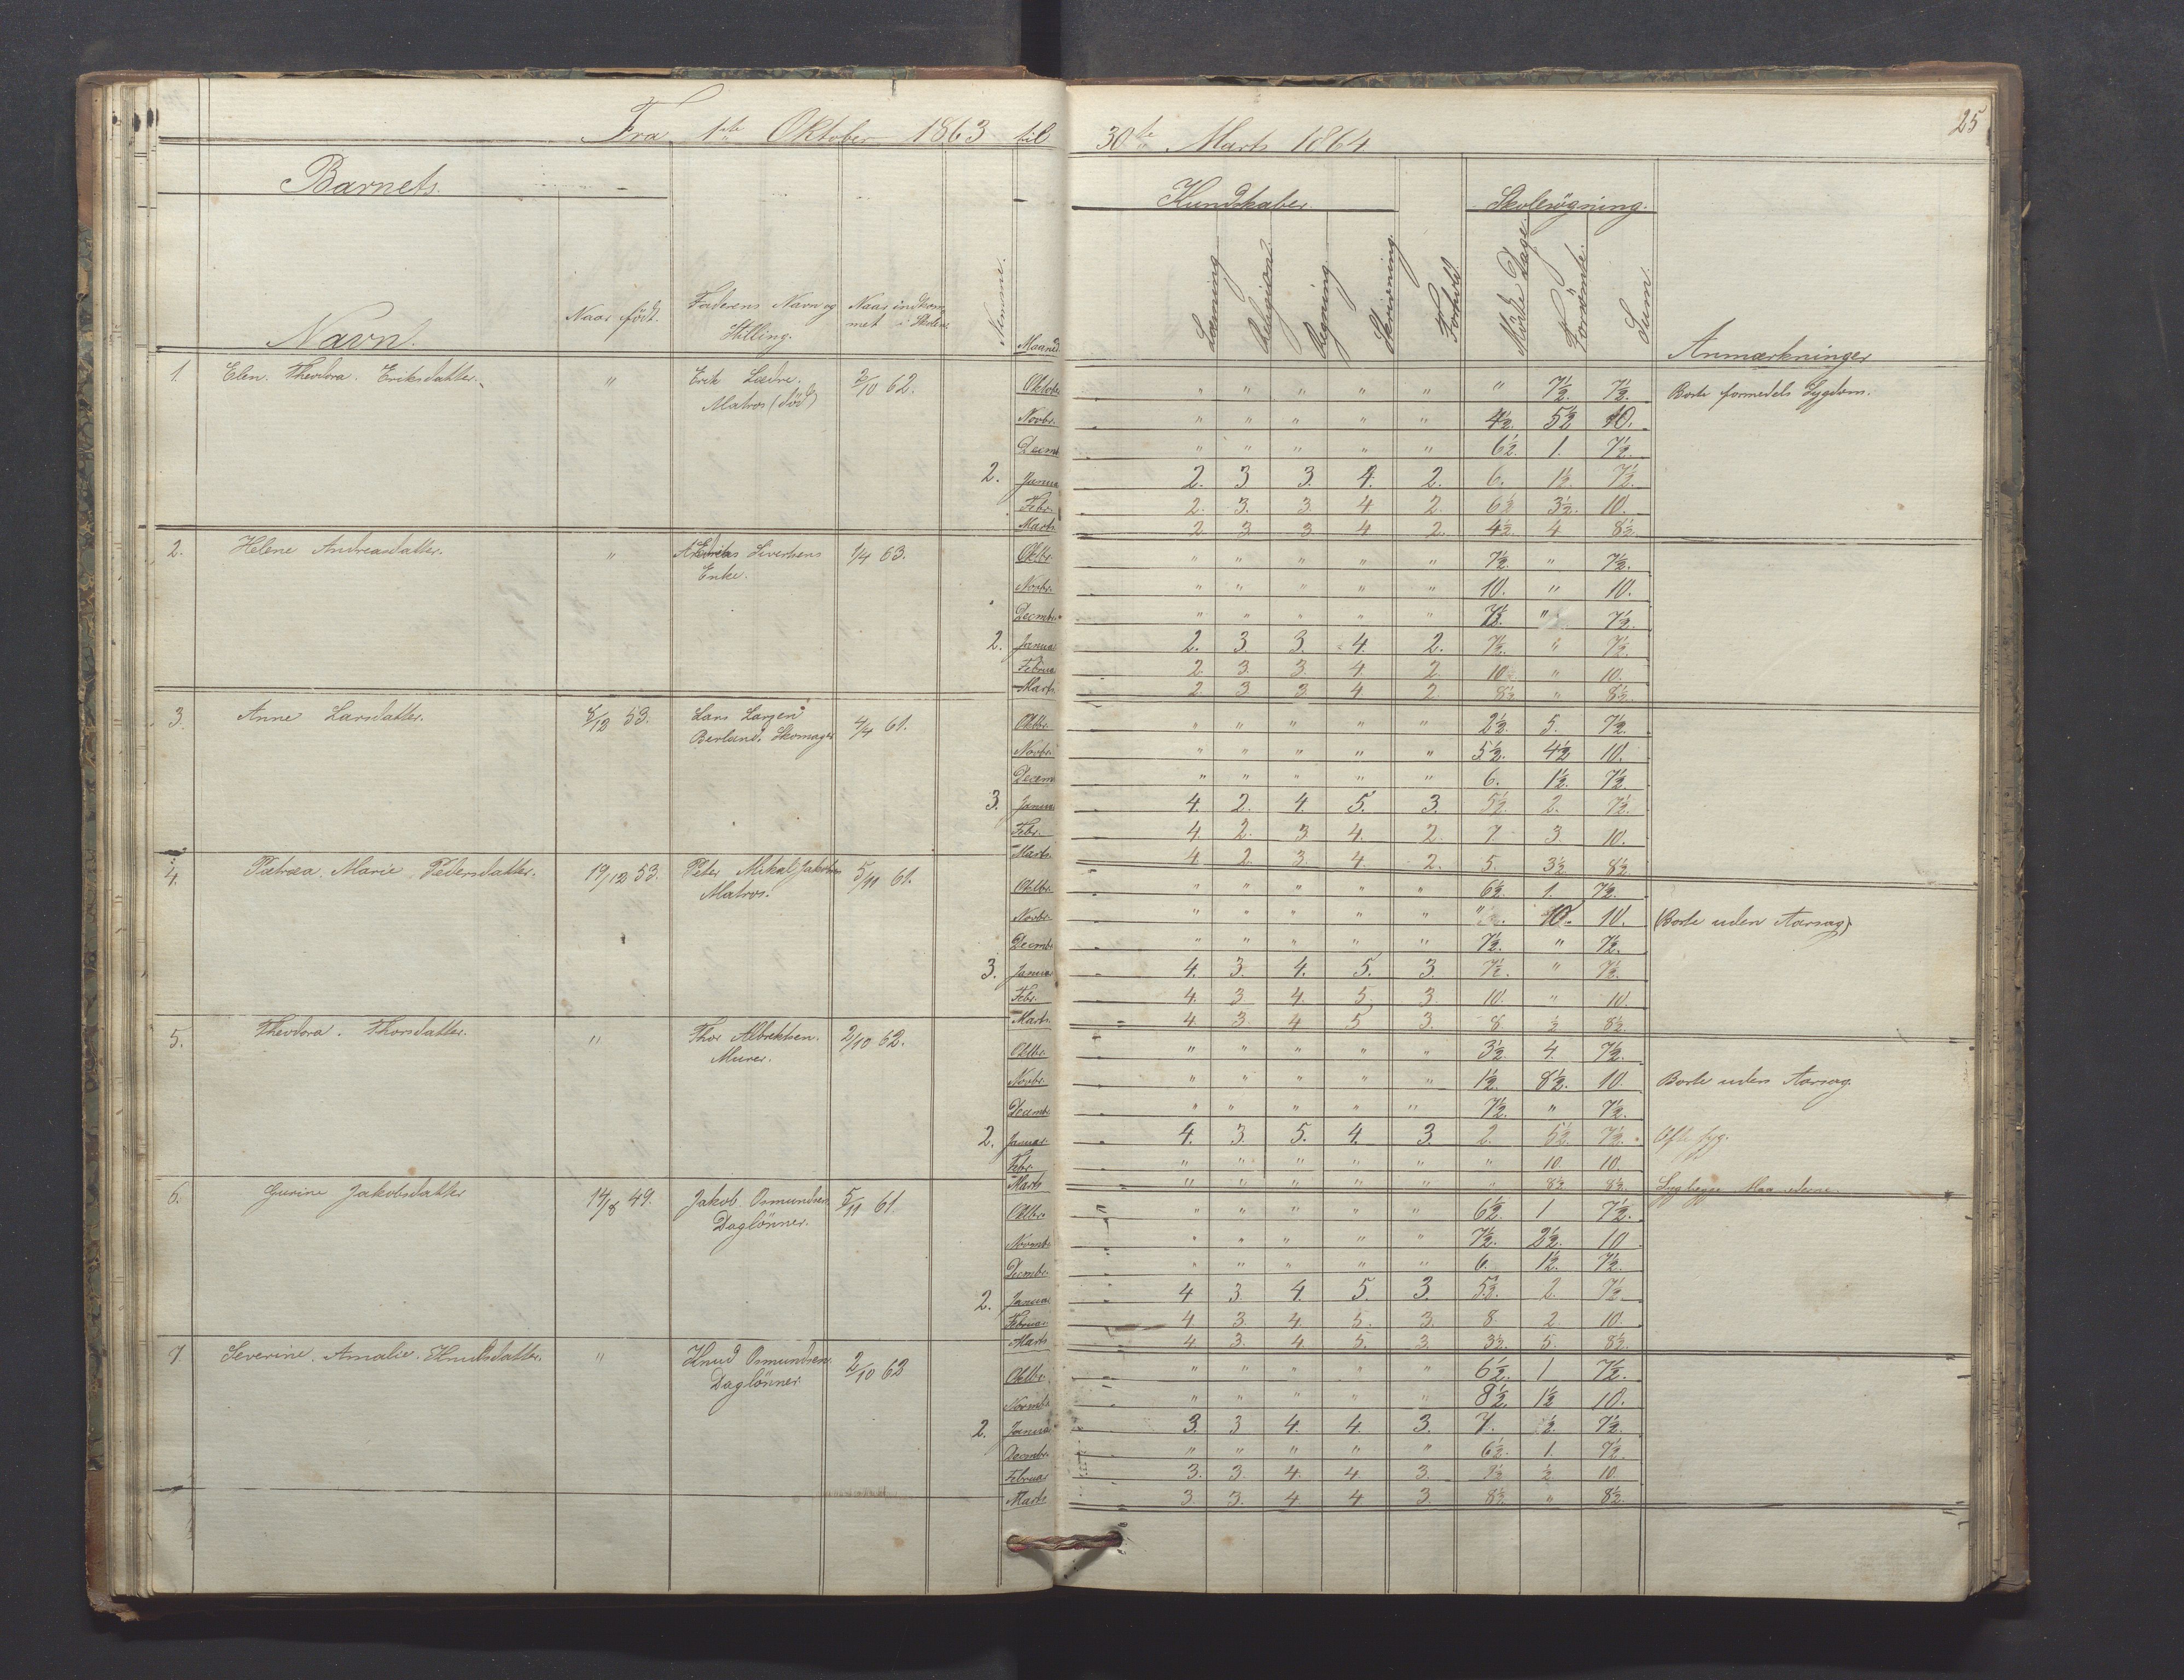 25
Fra 1ste Oktober 1863 til 30te Marts 1864.
Barnets Kundskaber. Skolesøgning.
Navn. Naar født. Faderens Navn og Stilling. Naar indkommet i Skolen. Nemme. Maaned. Læsning Religion Regning Skrivning. Forhold. Mødte Dage. Forsømte. Sum. Anmærkninger
1. Elen. Theodora. Eriksdatter. " Erik Lædre. 2/10 62. Oktober " " " " " " 7½. 7½. Borte formedels Sygdom.
Matros (død) Novbr. " " " " " 4½. 5½ 10.
Decmb " " " " " 6½. 1. 7½.
2. Janua 2. 3 3. 4. 2. 6. 1½. 7½.
Febr. 2. 3. 3. 4 2. 6½ 3½. 10.
Marts 2 3 3 4 2 4½. 4 8½.
2. Helene Andreasdatter. " Sivertsens 1/4 63. Oktbr. " " " " " 7½. " 7½.
Enke. Novbr. " " " " " 10. " 10.
Decmbr. " " " " " 7½. " 7½.
2. Janua. 2. 3. 3. 4. 2. 7½. " 7½.
Februa 2. 3. 3. 4. 2. 10 " 10.
Marts 2 3 3 4 2. 8½ " 8½.
3. Anne Larsdatter. 53. Lars Larsen 4/4 61. Oktbr. " " " " " 2½. 5. 7½.
Berland. Skomager Novbr. " " " " " 5½. 4½ 10.
Decem " " " " " 6. 1½. 7½.
3. Janua 4. 2. 4. 5. 3. 5½. 2. 7½.
Febr. 4. 2. 3 4. 2. 7 3. 10.
Marts. 4 2. 3. 4. 2. 5. 3½. 8½
4. Petræa. Marie Pedersdatter. 19/12 53. Peter Mikal Jakobsen 5/11 61. Oktbr. " " " " " 6½. 1. 7½.
Matros. Novbr. " " " " " " 10. 10. (Borte uden Aarsag)
Decmb. " " " " " 7½. " 7½.
3. Janua 4. 3. 4. 5. 3. 7½. " 7½.
Febr. 4. 3 4. 5. 3 10. " 10.
Marts. 4. 3. 4 5 3. 8 ½ 8½.
5. Theodora. Thorsdatter. " Thor Albrektsen. 2/10 62. Oktbr. " " " " " 3½ 4. 7½.
Murer. Novbr. " " " " " 1½. 8½. 10. Borte uden Aarsag.
Decmb. " " " " " 7½. " 7½.
2. Januar. 4. 3. 5. 4. 3. 2. 5½. 7½. Ofte syg.
Febr. " " " " " " 10. 10.
Marts " " " " " " 8½ 8½. Syg begge Maanederne.
6. Gurine Jakobsdatter 14/8 49. Jakob Osmundsen 5/11 61. Oktbr. " " " " " 6½. 1 7½.
Daglønner. Novmb. " " " " " 7½. 2½. 10.
Decmbr. " " " " " 6. 1½. 7½.
2. Janua 4 3. 4. 5. 3. 5½. 2. 7½
Februar. 4 3. 4. 5. 3. 8. 2. 10.
Marts 4. 3. 4. 5. 3. 3½. 5. 8½.
7 Severine. Amalie. Knudsdatter. " Knud Osmundsen. 2/10 62 Oktbr. " " " " " 6½. 1 7½.
Daglønner Novmb. " " " " " 8½. 1½ 10.
2. Janua 3. 3 4. 4. 3. 7. ½. 7½.
Decmbr. " " " " " 6½. 1. 7½.
Februar 3. 3. 4. 4. 3. 9½ ½. 10.
Marts 3. 3. 4 4 3. 8½. " 8½.